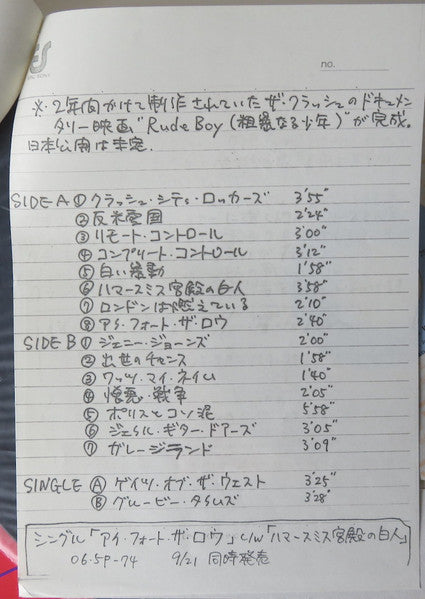 no.
※・2年間かけて制作されていたザ・クラッシュのドキュメン
タリー映画"Rude Boy (粗暴なる少年)"が完成。
日本公開は未定.
SIDE A ① クラッシュ・シティ・ロッカーズ 3'55"
② 反米愛国 2'24"
③ リモート・コントロール 3'00"
④ コンプリート・コントロール 3'12"
⑤ 白い暴動 1'58"
⑥ ハマースミス宮殿の白人 3'58"
⑦ ロンドンは燃えている 2'10"
⑧ アイ・フォート・ザ・ロウ 2'40"
SIDE B ① ジェニー・ジョーンズ 2'00"
② 出世のチャンス 1'58"
③ ワッツ・マイ・ネイム 1'40"
④ 憎悪・戦争 2'05"
⑤ ポリスとコソ泥 5'58"
⑥ ジェイル・ギター・ドアーズ 3'05"
⑦ ガレージランド 3'09"
SINGLE Ⓐ ゲイツ・オブ・ザ・ウェスト 3'25"
Ⓑ グルービー・タイムズ 3'28"
シングル「アイ・フォート・ザ・ロウ」c/w「ハマースミス宮殿の白人」
06・5P-74 9/21 同時発売